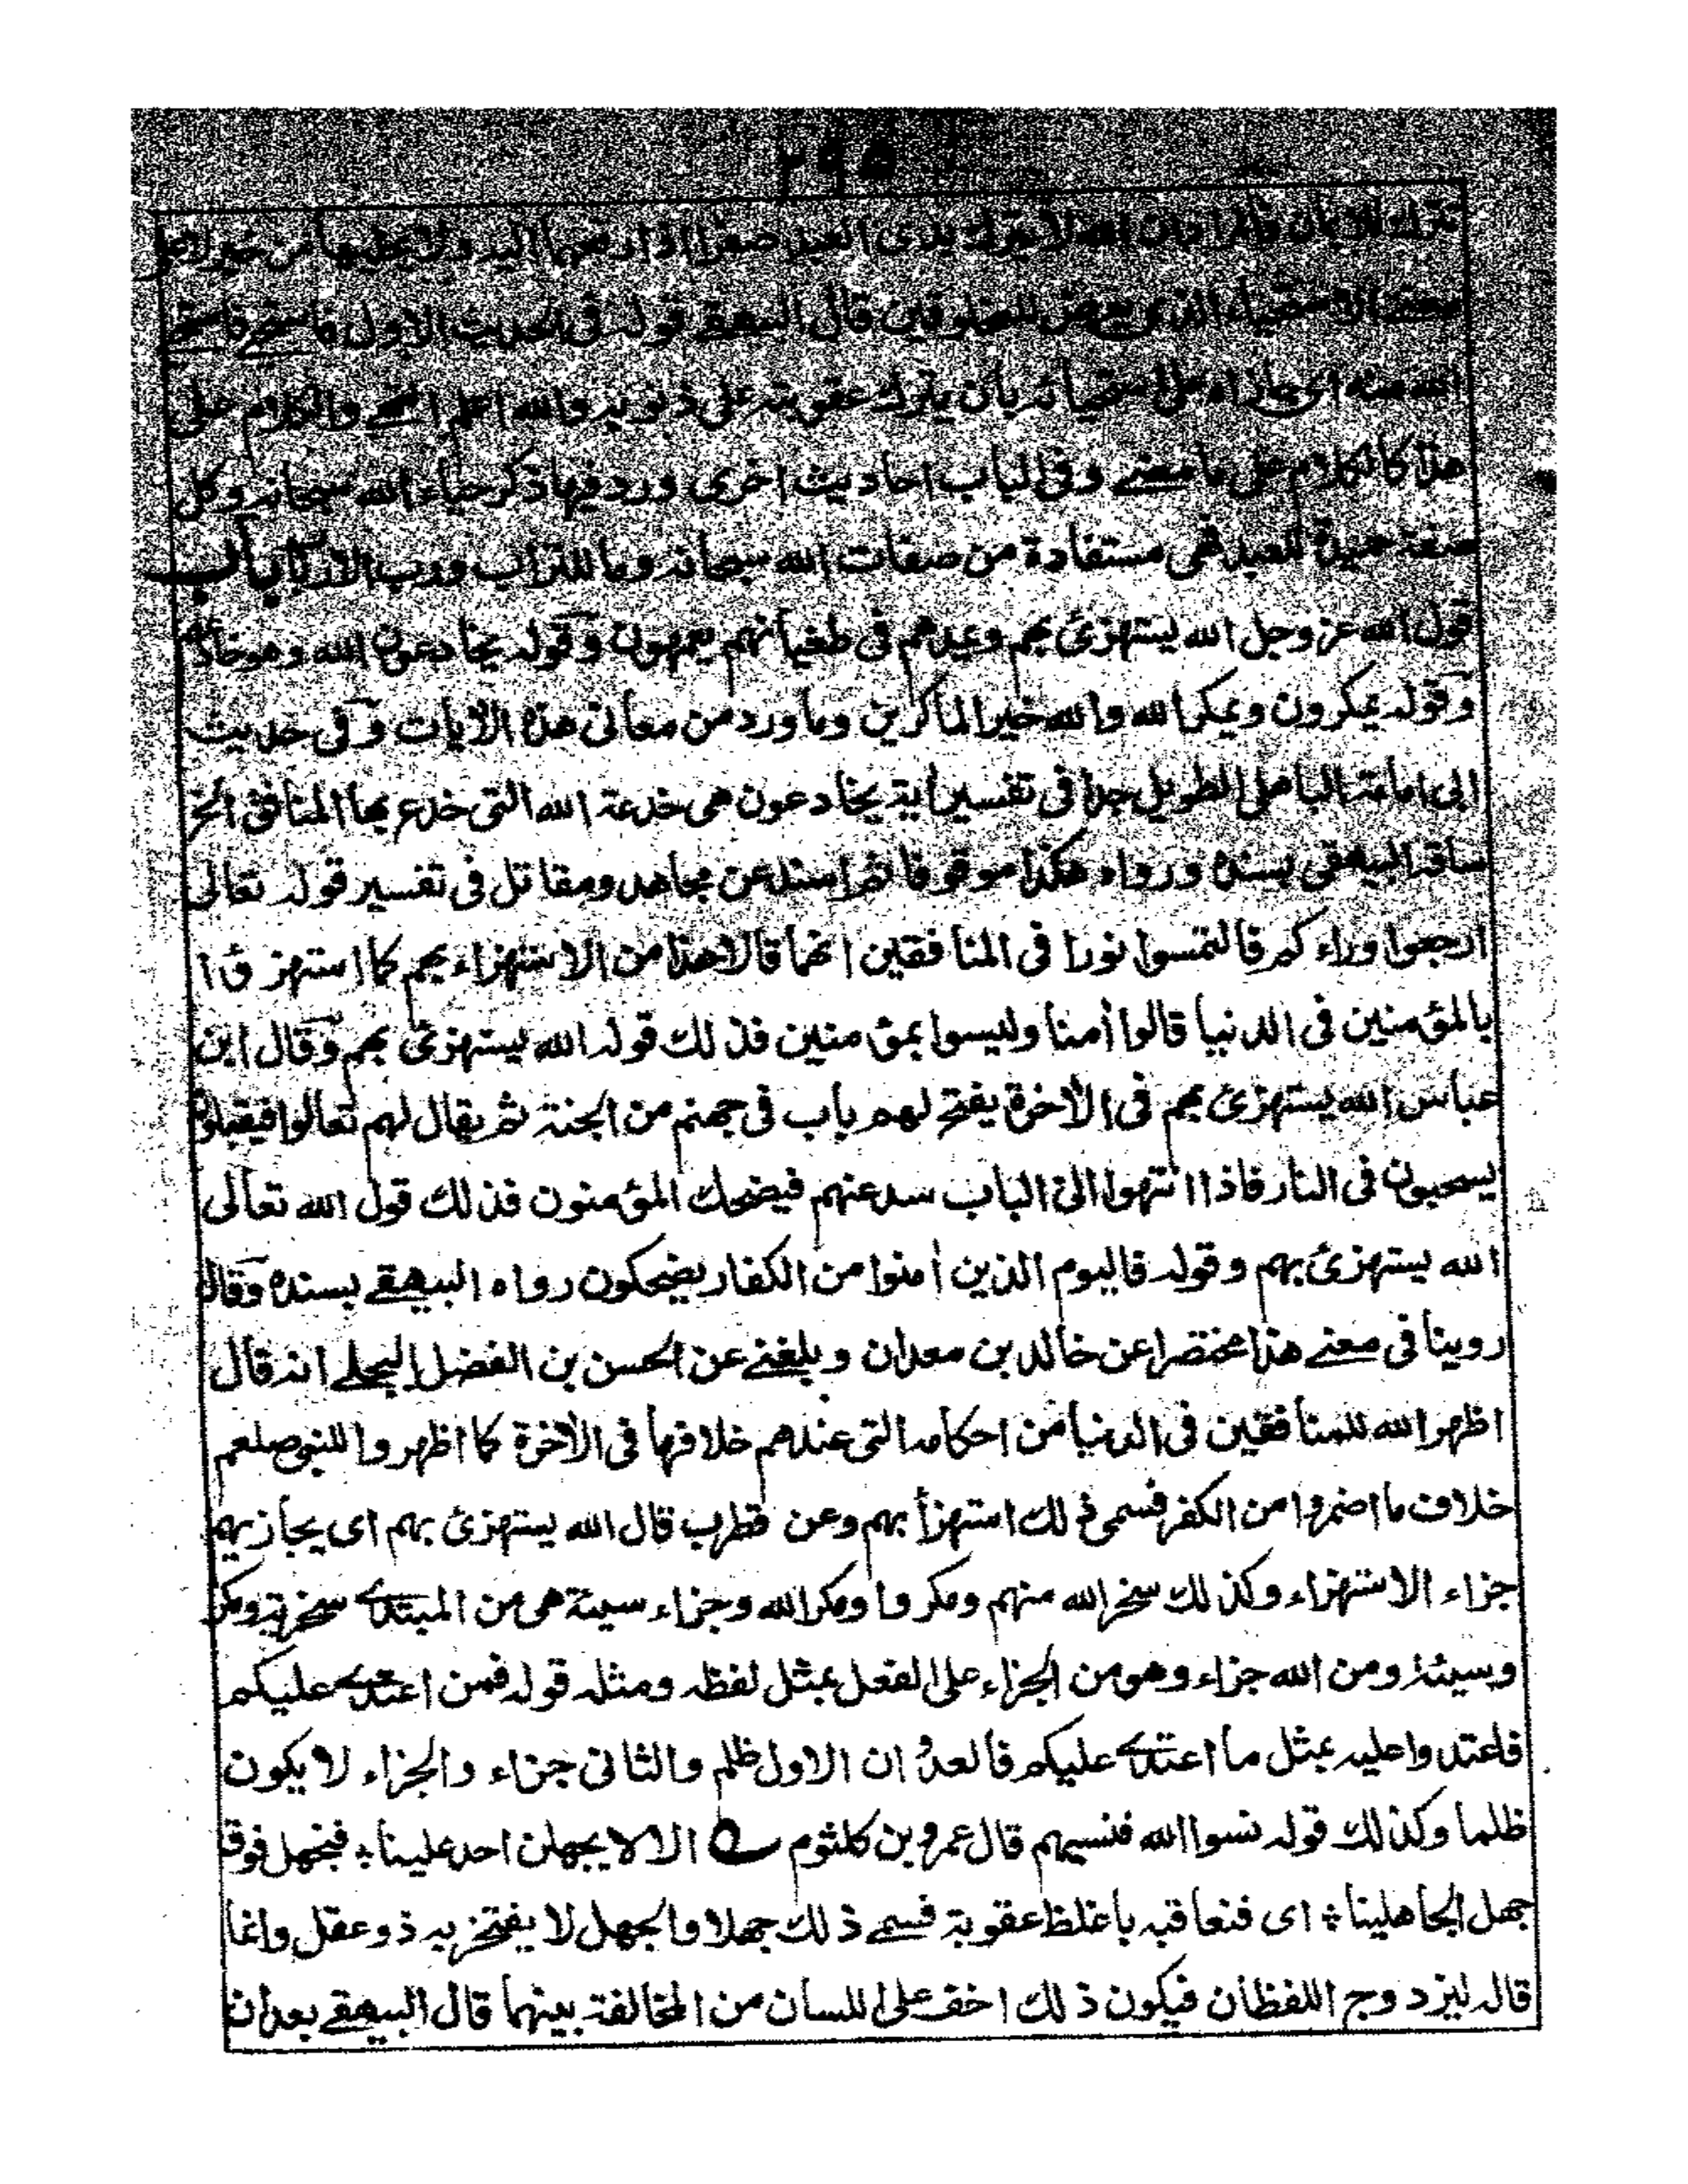 ٢٩٥
الله لا يترك يدى العبد صفرا اذا رفعهما اليه ولا يخليهما من خير لا على
معنى الاستحياء الذى يعرض للمخلوقين قال البيهقے قوله فى الحديث الاول فاستحے فاستحے
الله منه اى جازاه على استحيائه بان يترك عقوبته على ذنوبه والله اعلم انتهے والكلام على
هذا كالكلام على ما مضے وفى الباب احاديث اخرى ورد فيها ذكر حياء الله سبحانه وكل
صفة حميدة للعبد فهى مستفادة من صفات الله سبحانه وما للتراب ورب الارباب باب
قول الله عز وجل الله يستهزئ بهم ويمدهم فى طغيانهم يعمهون وقوله يخادعون الله وهو خادعهم
وقوله يمكرون ويمكر الله والله خير الماكرين وما ورد من معانى هذه الآيات وفى حديث
ابى امامة الباهلى الطويل جدا فى تفسير اية يخادعون هى خدعة الله التى خدع بها المنافق الخ
ساقه البيهقى بسنده ورواه هكذا موقوفا ثم اسند عن مجاهد ومقاتل فى تفسير قوله تعالى
ارجعوا وراءكم فالتمسوا نورا فى المنافقين انهما قالا هذا من الاستهزاء بهم كما استهزؤا
بالمؤمنين فى الدنيا قالوا أمنا وليسوا بمؤمنين فذلك قوله الله يستهزئ بهم وقال ابن
عباس الله يستهزئ بهم فى الآخرة يفتح لهم باب فى جهنم من الجنة ثم يقال لهم تعالوا فيقبلون
يسحبون فى النار فاذا انتهوا الى الباب سد عنهم فيضحك المؤمنون فذلك قول الله تعالى
الله يستهزئ بهم وقوله فاليوم الذين أمنوا من الكفار يضحكون رواه البيهقے بسنده وقال
روينا فى معنے هذا مختصرا عن خالد بن معدان وبلغنے عن الحسن بن الفضل البجلے انه قال
اظهر الله للمنافقين فى الدنيا من احكامه التى عندهم خلافها فى الآخرة كما اظهروا للنبى صلعم
خلاف ما اضمروا من الكفر فسمى ذلك استهزأ بهم وعن قطرب قال الله يستهزئ بهم اى يجازيهم
جزاء الاستهزاء وكذلك سخر الله منهم ومكروا ومكر الله وجزاء سيئة هى من المبتدے سخرية ومكر
وسيئة ومن الله جزاء وهو من الجزاء على الفعل بمثل لفظه ومثله قوله فمن اعتدے عليكم
فاعتدوا عليه بمثل ما اعتدے عليكم فالعدو ان الاول ظلم والثانى جزاء والجزاء لا يكون
ظلما وكذلك قوله نسوا الله فنسيهم قال عمرو بن كلثوم ؎ الا لا يجهلن احد علينا ٭ فنجهل فوق
جهل الجاهلينا ٭ اى فنعاقبه باغلظ عقوبة فسمے ذلك جهلا والجهل لا يفتخر به ذو عقل وانما
قاله ليزدوج اللفظان فيكون ذلك اخف على اللسان من المخالفة بينهما قال البيهقے بعد ان